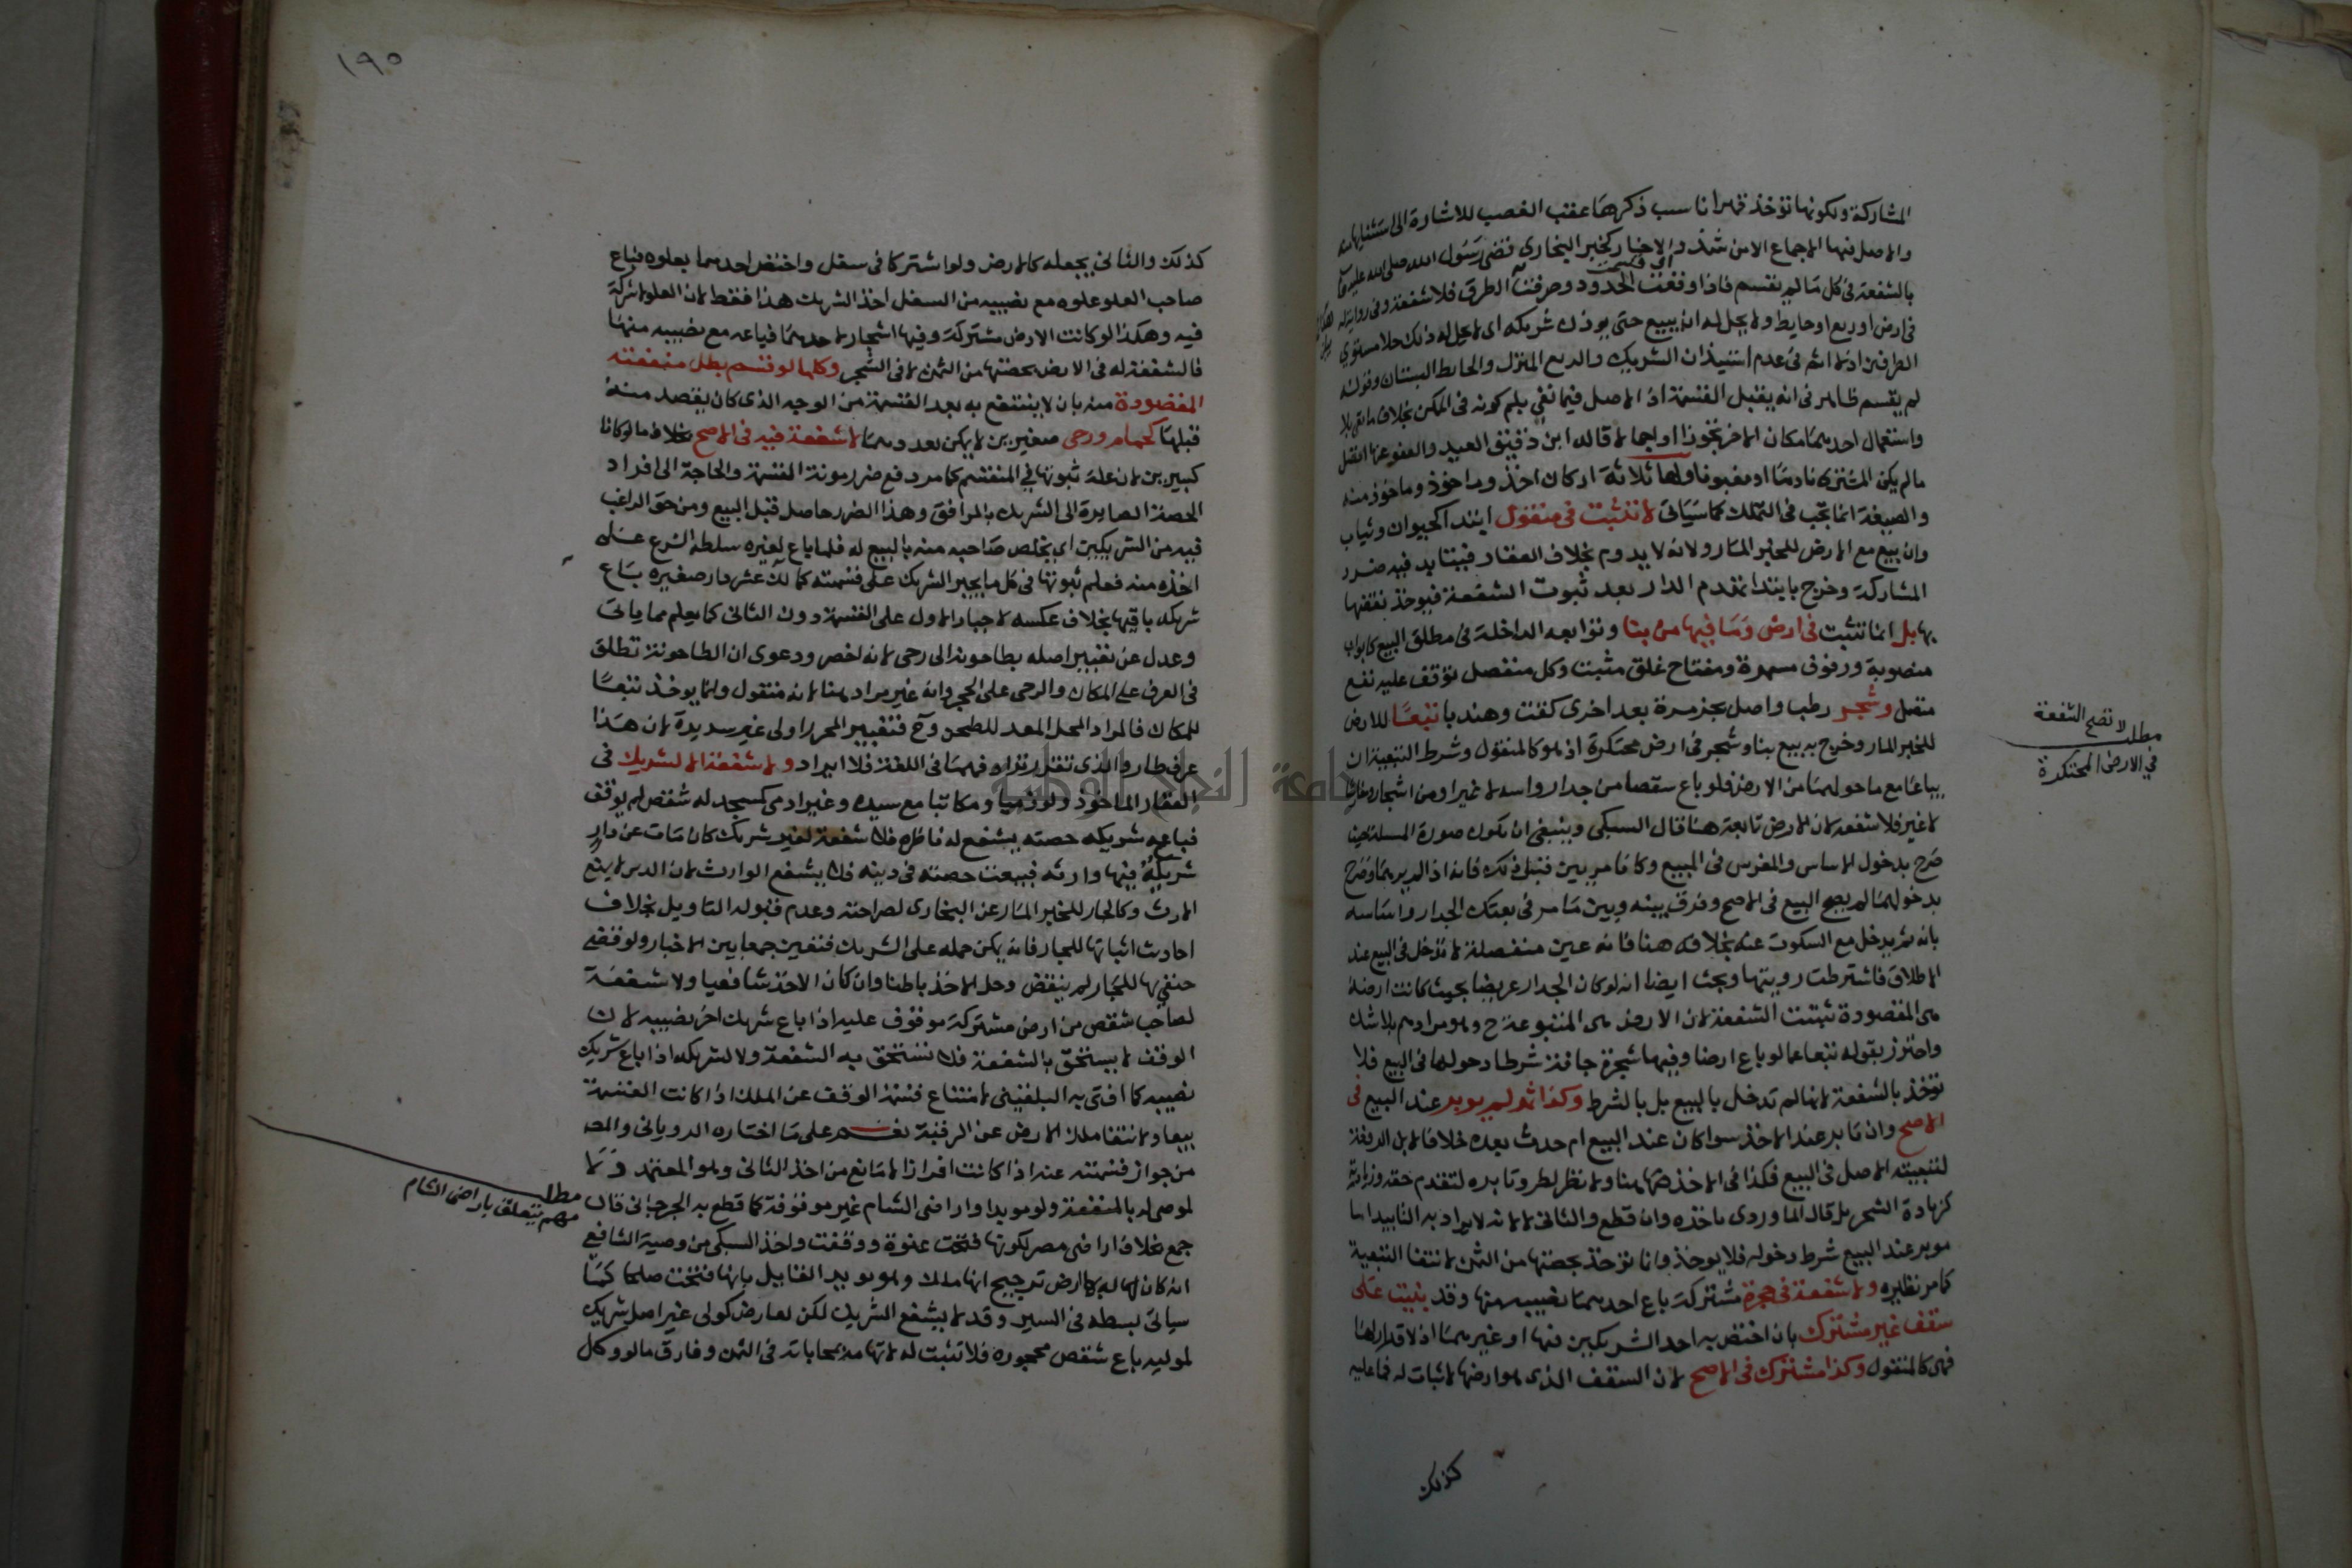 المشاركة ولكونها تؤخذ قهرا ناسب ذكرها عقب الغصب للاشارة الى استثنايها منه
والاصل فيها الاجماع الا من شذ والاخبار كخبر البخاري قضى رسول الله صلى الله عليه
بالشفعة في كل ما لم يقسم فاذا وقعت الحدود وصرفت الطرق فلا شفعة وفي رواية له
في ارض او ربع او حايط ولا يحل له ان يبيع حتى يوذن شريكه اي لا يحل له ذلك حلا مستوي
الطرفين اذ لا اثم في عدم استيذان الشريك والربع المنزل والحايط البستان وقوله
لم يقسم ظاهر في انه يقبل القسمة اذ الاصل فيما نفي بلم كونه في الممكن بخلاف ما نفي بلا
واستعمال احدهما مكان الاخر تجوز او اجمال قاله ابن دقيق العيد والعفو عنها افضل
ما لم يكن المشتري نادما او مغبونا ولها ثلاثة اركان اخذ وماخوذ وماخوذ منه
والصيغة انما تجب في التملك كما سياتي لا تثبت في منقول ابتدا كحيوان وثياب
وان بيع مع الارض للخبر المار ولانه لا يدوم بخلاف العقار فيتابد فيه ضرر
المشاركة وخرج بابتدا تهدم الدار بعد ثبوت الشفعة فيوخذ نقضها
بها بل انما تثبت في ارض وما فيها من بنا وتوابعه الداخلة في مطلق البيع كابواب
منصوبة ورفوف مسمرة ومفتاح غلق مثبت وكل منفصل توقف عليه نفع
متصل وشجر رطب واصل يجز مرة بعد اخرى كقت وهندبا تبعا للارض
للخبر المار وخرج به بيع بنا وشجر في ارض محتكرة اذ هو كالمنقول وشرط التبعية ان
يباعا مع ما حولهما من الارض فلو باع شقصا من جدار واسه لا غير او من اشجار ومغارسها
لا غير فلا شفعة لان الارض تابعة هنا قال السبكي وينبغي ان تكون صورة المسئلة حيث
صرح بدخول الاساس والمغرس في المبيع وكانا مريين قبل ذلك فانه اذا لم يرهما وصرح
بدخولهما لم يصح البيع في الاصح وفرق بينه وبين ما مر في بعتك الجدار واساسه
بانه ثم يدخل مع السكوت عنه بخلافه هنا فانه عين منفصلة لا تدخل في البيع عند
الاطلاق فاشترطت رويتها وبحث ايضا انه لو كان الجدار عريضا بحيث كانت ارضه
هي المقصودة ثبتت الشفعة لان الارض هي المتبوعة ح وهو مرادهم بلا شك
واحترز بقوله تبعا عما لو باع ارضا وفيها شجرة جافة شرطا دخولها في البيع فلا
توخذ بالشفعة لانها لم تدخل بالبيع بل بالشرط وكذا ثمر لم يوبر عند البيع في
الاصح وان تابر عند الاخذ سوا كان عند البيع ام حدث بعده خلافا لابن الرفعة
لتبعيته الاصل في البيع فكذا في الاخذ هنا ولا نظر لطرو تابره لتقدم حقه وزيادته
كزيادة الشجر بل قال الماوردي ياخذه وان قطع والثاني لا لانه لا يراد به التابيد اما
موبر عند البيع شرط دخوله فلا يوخذ وانما توخذ بحصتها من الثمن لانتفا التبعية
كما مر نظيره ولا شفعة في حجرة مشتركة باع احدهما نصيبه منها وقد بنيت على
سقف غير مشترك بان اختص به احد الشريكين فيها او غيرهما اذ لا قرار لها
فهي كالمنقول وكذا مشترك في الاصح لان السقف الذي هو ارضها لا ثبات له فما عليه
كذلك
مطلب لا تصح الشفعة
في الارض المحتكرة
١٩٥
كذلك والثاني يجعله كالارض ولو اشتركا في سفل واختص احدهما بعلوه فباع
صاحب العلو علوه مع نصيبه من السفل اخذ الشريك هذا فقط لان العلو لا شركة
فيه وهكذا لو كانت الارض مشتركة وفيها اشجار لاحدهما فباعه مع نصيبه منها
فالشفعة له في الارض بحصتها من الثمن لا في الشجر وكلما لو قسم بطل منفعته
المقصودة منه بان لا ينتفع به بعد القسمة من الوجه الذي كان يقصد منه
قبلها كحمام ورحى صغيرين لا يمكن تعددهما لا شفعة فيه في الاصح بخلاف ما لو كانا
كبيرين لان علة ثبوتها في المنقسم كما مر دفع ضرر مونة القسمة والحاجة الى افراد
الحصة الصايرة الى الشريك بالمرافق وهذا الضرر حاصل قبل البيع ومن حق الراغب
فيه من الشريكين ان يخلص صاحبه منه بالبيع له فلما باع لغيره سلطه الشرع على
اخذه منه فعلم ثبوتها في كل ما يجبر الشريك على قسمته كمالك عشر دار صغيرة باع
شريكه باقيها بخلاف عكسه لاجبار الاول على القسمة دون الثاني كما يعلم مما ياتي
وعدل عن تعبير اصله بطاحونة الى رحى لانه اخصر ودعوى ان الطاحونة تطلق
في العرف على المكان والرحى على الحجر وانه غير مراد هنا لانه منقول وانما يوخذ تبعا
للمكان فالمراد المحل المعد للطحن وح فتعبير المحرر اولى غير سديدة لان هذا
عرف طار والذي تقرر ترادفهما في اللغة فلا ايراد ولا شفعة الا لشريك في
العقار الماخوذ ولو ذميا ومكاتبا مع سيده وغير ادمي كمسجد له شقص لم يوقف
فباع شريكه حصته يشفع له ناظره فلا شفعة لغير شريك كان مات عن دار
شريكه فيها وارثه فبيعت حصته في دينه فلا يشفع الوارث لان الدين لا يمنع
الارث وكالجار للخبر المار عن البخاري لصراحته وعدم قبوله التاويل بخلاف
احاديث اثباتها للجار فانه يمكن حمله على الشريك فتعين جمعا بين الاخبار ولو قضى
حنفي بها للجار لم ينقض وحل الاخذ باطنا وان كان الاخذ شافعيا ولا شفعة
لصاحب شقص من ارض مشتركة موقوف عليه اذا باع شريك اخر نصيبه لان
الوقف لا يستحق بالشفعة فلا تستحق به الشفعة ولا لشريكه اذا باع شريك
نصيبه كما افتى به البلقيني لامتناع قسمة الوقف عن الملك اذا كانت القسمة
بيعا ولانتفا ملك الارض عن الرقبة نعم على ما اختاره الروياني والمص
من جواز قسمته عنه اذا كانت افرازا لا مانع من اخذ الثاني وهو المعتمد ولا
لموصى له بالمنفعة ولو موبدا واراضي الشام غير موقوفة كما قطع به الجرجاني قال
جمع بخلاف اراضي مصر لكونها فتحت عنوة ووقفت واخذ السبكي من وصية الشافعي
انه كان له بها ارض ترجيح انها ملك وهو يويد القايل بانها فتحت صلحا كما
سياتي بسطه في السير وقد لا يشفع الشريك لكن لعارض كولي غير اصل شريك
لموليه باع شقص محجوره فلا تثبت له لاتهامه بمحاباته في الثمن وفارق ما لو وكل
مطلب
مهم يتعلق باراضي الشام